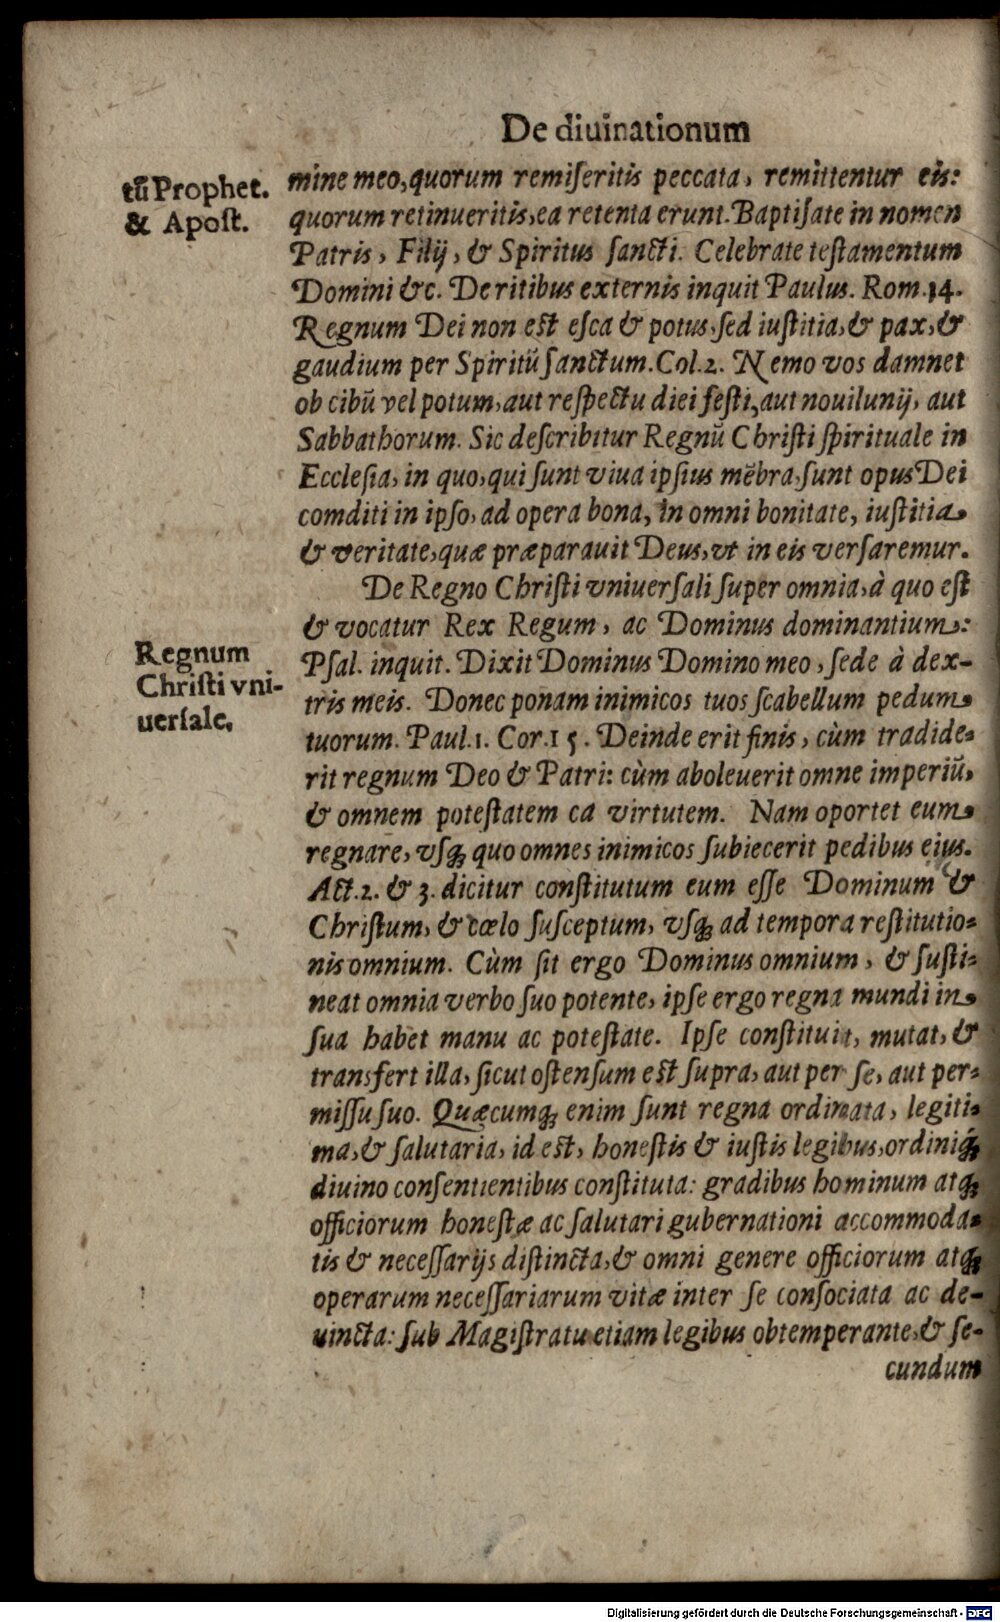 De diuinationum
tũ Prophet.
& Apost.
mine meo, quorum remiſeritis peccata, remittentur eis:
quorum retinueritis, ea retenta erunt. Baptiſate in nomen
Patris, Filij, & Spiritus ſancti. Celebrate teſtamentum
Domini &c. De ritibus externis inquit Paulus. Rom. 14.
Regnum Dei non est eſca & potus, ſed iuſtitia, & pax, &
gaudium per Spiritũ ſanctum. Col. 2. Nemo vos damnet
ob cibũ vel potum, aut reſpectu diei feſti, aut nouilunij, aut
Sabbathorum. Sic deſcribitur Regnũ Chriſti ſpirituale in
Eccleſia, in quo, qui ſunt viua ipſius mẽbra, ſunt opus Dei
comditi in ipſo, ad opera bona, in omni bonitate, iuſtitia,
& veritate, quæ præparauit Deus, vt in eis verſaremur.
De Regno Chriſti vniuerſali ſuper omnia, à quo eſt
& vocatur Rex Regum, ac Dominus dominantium:
Regnum
Chriſti vni-
uerſale.
Pſal. inquit. Dixit Dominus Domino meo, ſede à dex-
tris meis. Donec ponam inimicos tuos ſcabellum pedum
tuorum. Paul. 1. Cor. 15. Deinde erit finis, cùm tradide-
rit regnum Deo & Patri: cùm aboleuerit omne imperiũ,
& omnem poteſtatem ca virtutem. Nam oportet eum
regnare, vſq; quo omnes inimicos ſubiecerit pedibus eius.
Act. 2. & 3. dicitur conſtitutum eum eſſe Dominum &
Chriſtum, & cœlo ſuſceptum, vſq; ad tempora reſtitutio-
nis omnium. Cùm ſit ergo Dominus omnium, & ſuſti-
neat omnia verbo ſuo potente, ipſe ergo regna mundi in
ſua habet manu ac poteſtate. Ipſe conſtituit, mutat, &
transfert illa, ſicut oſtenſum est ſupra, aut per ſe, aut per-
miſſu ſuo. Quæcumq; enim ſunt regna ordinata, legiti-
ma, & ſalutaria, id est, honeſtis & iuſtis legibus, ordiniq́;
diuino conſentientibus conſtituta: gradibus hominum atq;
officiorum honeſtæ ac ſalutari gubernationi accommoda-
tis & neceſſarijs diſtincta, & omni genere officiorum atq;
operarum neceſſariarum vitæ inter ſe conſociata ac de-
uincta: ſub Magiſtratu etiam legibus obtemperante, & ſe-
cundum
Digitalisierung gefördert durch die Deutsche Forschungsgemeinschaft - DFG